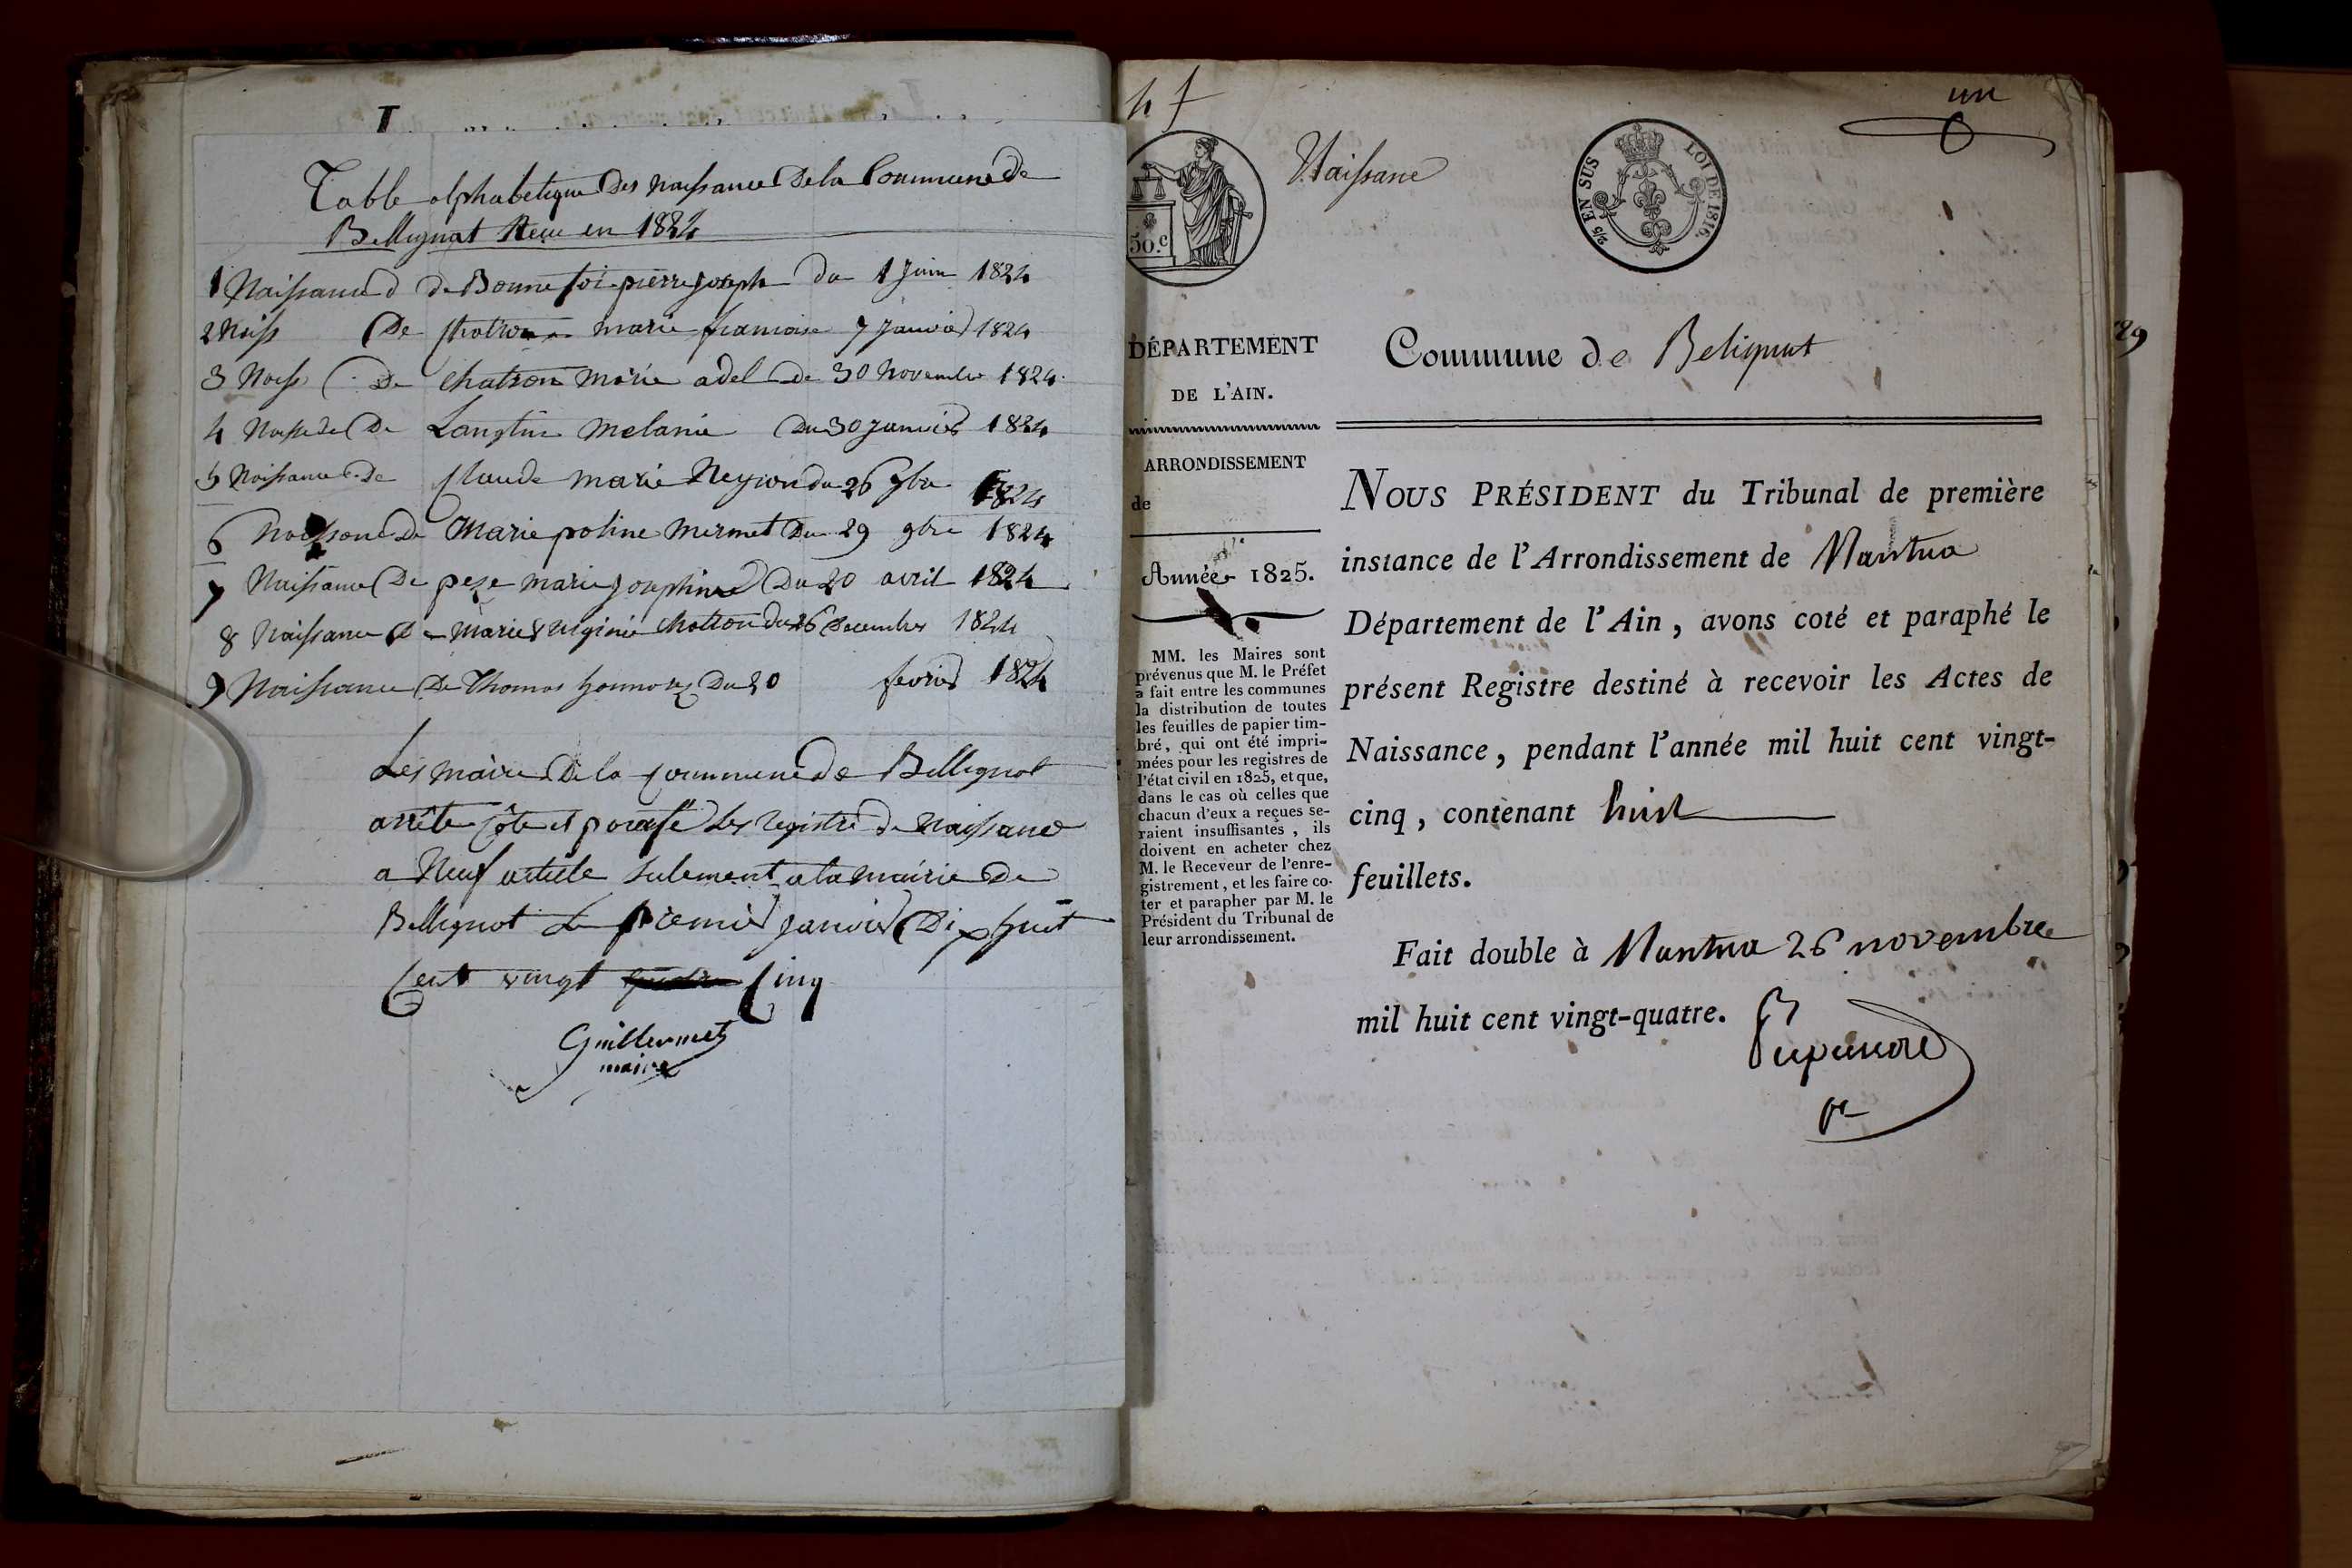 Table alphabetique Des naissance De la Commune de
Bellignat Recu en 1824
1 Naissance de Bonnefoi pierre joseph du 1 Juin 1824
2 Naiss De Chatron marie francoise 7 Janvier 1824
3 Naiss De chatron marie adel de 30 Novembre 1824
4 De Langlin melanie Du 30 janvier 1824
5 Naissance De Claude marie Neyron du 26 1824
6 De Marie poline mermet Du 29 9bre 1824
7 Naissance De pese marie josephine Du 20 avril 1824
8 Naissance De marie virginie chatron du 26 Decembre 1824
9 Naissance De Thomas honnorez Du 20 fevrier 1824
Les maire De la commune de Bellignat
arrête côte et parafé Les registre de Naissance
a Neuf article sulement a la mairie De
Bellignat Le premier janvier Dix huit
Cent vingt Cinq
Guillermet
maire
47
un
Naissance
50.c
2/5 EN SUS
LOI DE 1816.
DÉPARTEMENT
DE L'AIN.
ARRONDISSEMENT
de
Année 1825.
MM. les Maires sont
prévenus que M. le Préfet
a fait entre les communes
la distribution de toutes
les feuilles de papier tim-
bré, qui ont été impri-
mées pour les registres de
l'état civil en 1825, et que,
dans le cas où celles que
chacun d'eux a reçues se-
raient insuffisantes, ils
doivent en acheter chez
M. le Receveur de l'enre-
gistrement, et les faire co-
ter et parapher par M. le
Président du Tribunal de
leur arrondissement.
Commune de Belignat
NOUS PRÉSIDENT du Tribunal de première
instance de l'Arrondissement de Nantua
Département de l'Ain, avons coté et paraphé le
présent Registre destiné à recevoir les Actes de
Naissance, pendant l'année mil huit cent vingt-
cinq, contenant huit
feuillets.
Fait double à Nantua 26 novembre
mil huit cent vingt-quatre.
29